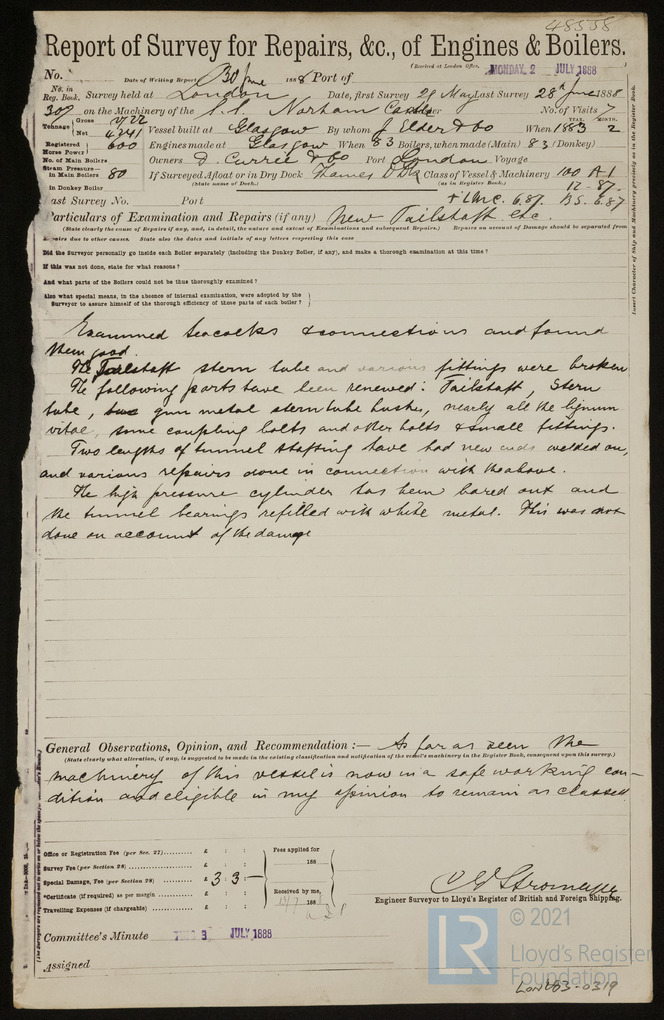 48558
Report of Survey for Repairs, &c., of Engines & Boilers.
(Received at London Office,
MONDAY. 2 JULY 1888
No. Date of Writing Report 30 June 1888 Port of
No. in Reg. Book. Survey held at London Date, first Survey 29 May Last Survey 28th June 1888
308 on the Machinery of the S.S. Norham Castle No. of Visits 7
Tonnage Gross Net 4241 Vessel built at Glasgow By whom J Elder & Co When 1883 YEAR. 2 MONTH.
Registered Horse Power 600 Engines made at Glasgow When 83 Boilers, when made (Main) 83 (Donkey)
No. of Main Boilers Owners D. Currie & Co Port London Voyage
Steam Pressure in Main Boilers 80 If Surveyed Afloat or in Dry Dock Thames Class of Vessel & Machinery 100 A1
(State name of Dock.) (as in Register Book.) 12-87.
in Donkey Boiler
Last Survey No. Port + LMC. 6.87. B.S. 6.87
Particulars of Examination and Repairs (if any) New Tailshaft etc.
(State clearly the cause of Repairs if any, and, in detail, the nature and extent of Examinations and subsequent Repairs.) Repairs on account of Damage should be separated from
Repairs due to other causes. State also the dates and initials of any letters respecting this case
Did the Surveyor personally go inside each Boiler separately (including the Donkey Boiler, if any), and make a thorough examination at this time?
If this was not done, state for what reasons?
And what parts of the Boilers could not be thus thoroughly examined?
Also what special means, in the absence of internal examination, were adopted by the
Surveyor to assure himself of the thorough efficiency of those parts of each boiler?
Insert Character of Ship and Machinery precisely as in the Register Book.
Examined seacocks & connections and found
them good.
The Tailshaft stern tube and various fittings were broken
The following parts have been renewed: Tailshaft, Stern
tube, two gun metal sterntube bushes, nearly all the lignum
vitae, some coupling bolts and other bolts & small fittings.
Two lengths of tunnel shafting have had new ends welded on,
and various repairs done in connection with the above.
The high pressure cylinder has been bored out and
the tunnel bearings refilled with white metal. This was not
done on account of the damage
General Observations, Opinion, and Recommendation :— As far as seen the
(State clearly what alteration, if any, is suggested to be made in the existing classification and notification of the vessel's machinery in the Register Book, consequent upon this survey.)
machinery of this vessel is now in a safe working con-
dition and eligible in my opinion to remain as classed
Office or Registration Fee (per Sec. 27) £ : :
Survey Fee (per Section 28) £ : :
Special Damage, Fee (per Section 28) £ 3 : 3 : —
*Certificate (if required) as per margin £ : :
Travelling Expenses (if chargeable) £ : :
Fees applied for
188
Received by me,
188
Engineer Surveyor to Lloyd's Register of British and Foreign Shipping.
Committee's Minute 3 JULY 1888
Assigned
LR © 2021
Lloyd's Register
Foundation
LON683-0319